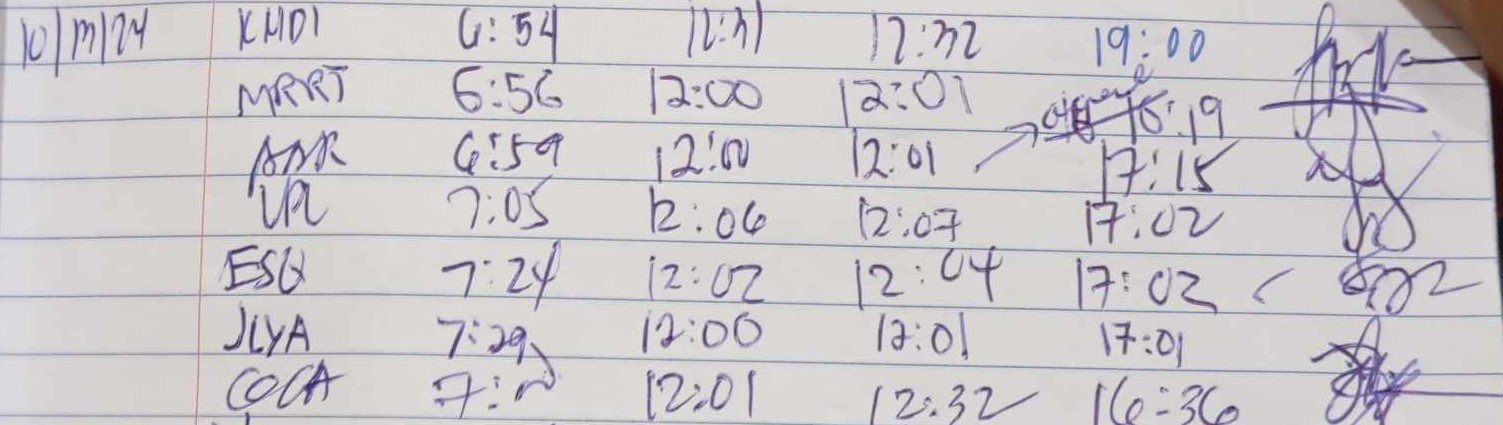 10/17/24 KHDI 6:54 12:31 12:32 19:00
MRRT 6:56 12:00 12:01 16:19
AAR 6:59 12:00 12:01 → 17:15
VPL 7:05 12:06 12:07 17:02
ESQ 7:24 12:02 12:04 17:02
JLYA 7:29 12:00 12:01 17:01
COCA 12:01 12:32 16:36